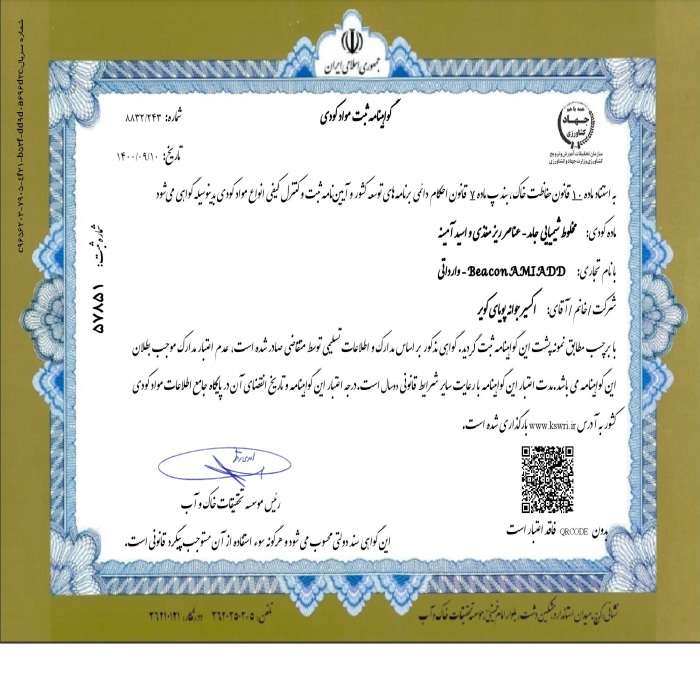 جمهوری اسلامی ایران
گواهینامه ثبت مواد کودی
شماره: ۸۸۳۲/۲۴۳
تاریخ: ۱۴۰۰/۰۹/۱۰
همه با هم
جهاد
کشاورزی
سازمان تحقیقات، آموزش و ترویج
کشاورزی وزارت جهاد کشاورزی
به استناد ماده ۱۰ قانون حفاظت خاک، بند پ ماده ۷ قانون احکام دائمی برنامه های توسعه کشور و آیین نامه ثبت و کنترل کیفی انواع مواد کودی بدینوسیله گواهی می شود
ماده کودی: مخلوط شیمیایی جامد - عناصر ریز مغذی و اسید آمینه
با نام تجاری: Beacon AMI ADD - وارداتی
شرکت / خانم / آقای: اکسیر جوانه پویای کویر
با برچسب مطابق نمونه پشت این گواهینامه ثبت گردید. گواهی مذکور بر اساس مدارک و اطلاعات تسلیمی توسط متقاضی صادر شده است، عدم اعتبار مدارک موجب بطلان
این گواهینامه می باشد. مدت اعتبار این گواهینامه با رعایت سایر شرایط قانونی دو سال است. درجه اعتبار این گواهینامه و تاریخ انقضای آن در پایگاه جامع اطلاعات مواد کودی
کشور به آدرس www.kswri.ir بارگذاری شده است.
شماره ثبت: ۵۷۸۵۱
رئیس موسسه تحقیقات خاک و آب
بدون QRCODE فاقد اعتبار است
این گواهی سند دولتی محسوب می شود و هرگونه سوء استفاده از آن مستوجب پیگرد قانونی است.
تلفن: ۳۶۲۰۲۵۰۲۰۵ دورنگار: ۳۶۲۱۰۱۲۱
شماره سریال: